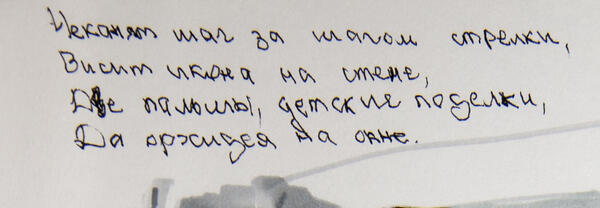 Чеканят шаг за шагом стрелки,
Висит икона на стене,
Две пальмы, детские поделки,
Да орхидея на окне.